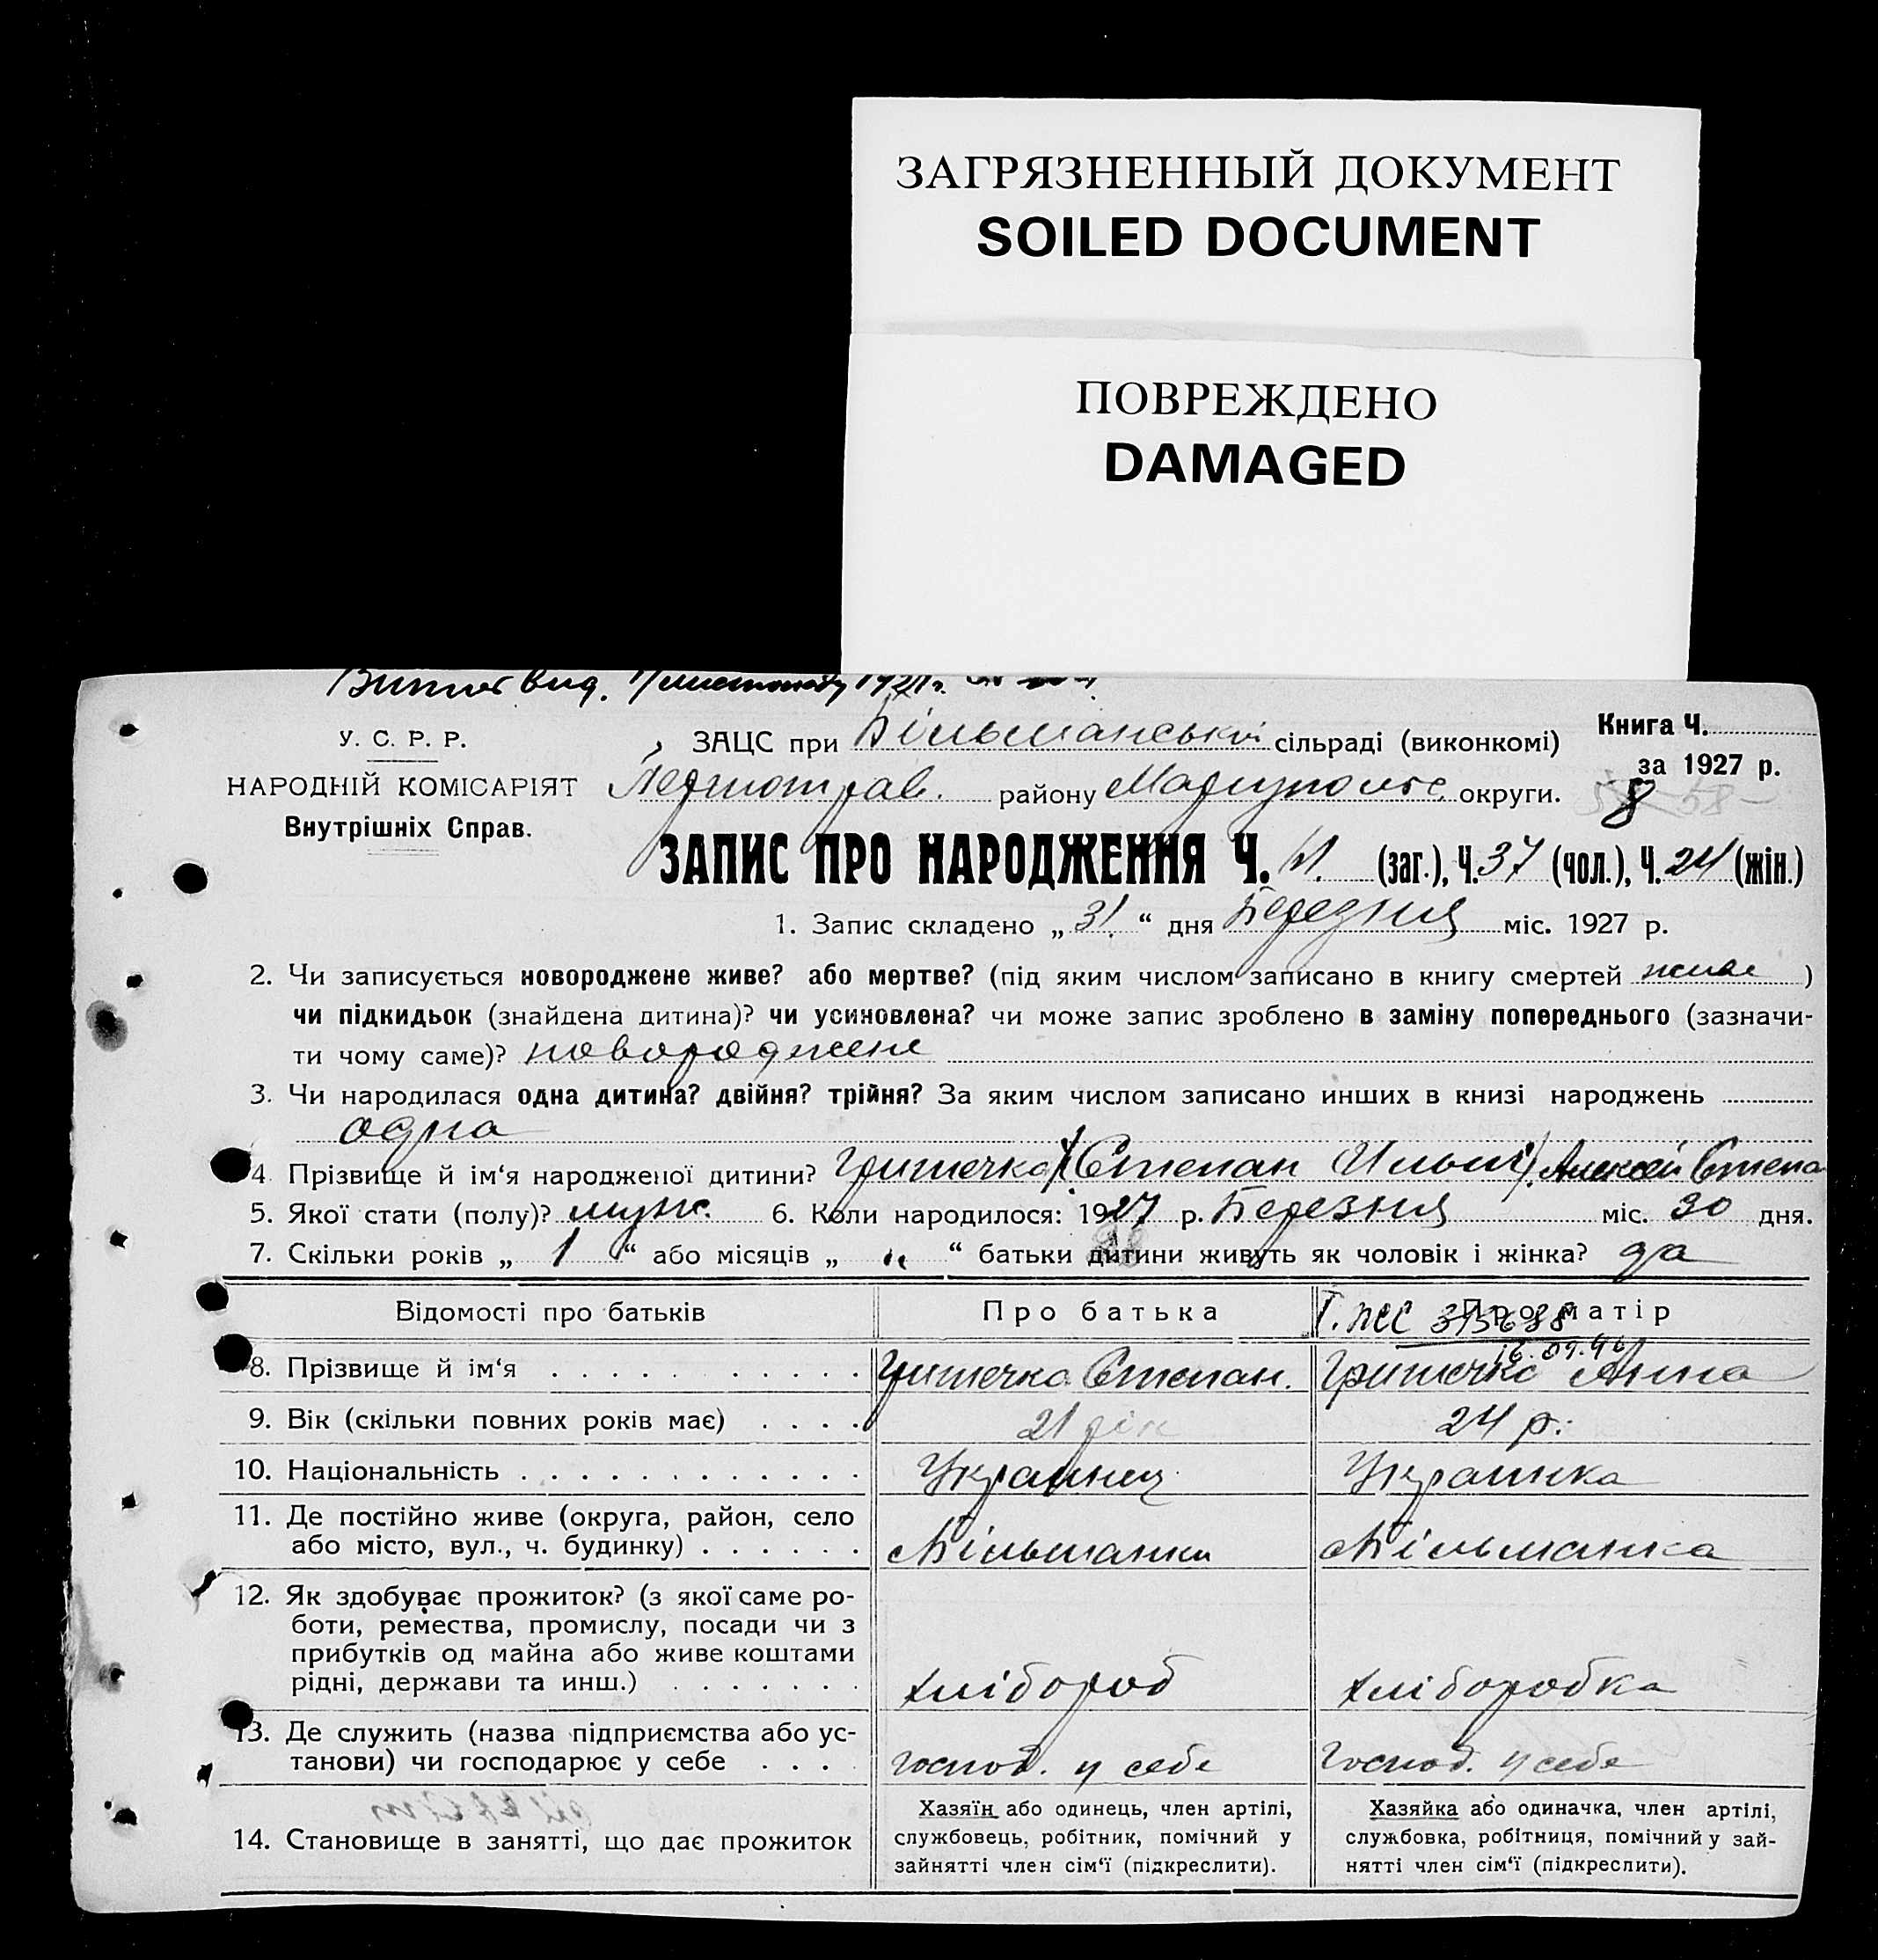 ЗАГРЯЗНЕННЫЙ ДОКУМЕНТ
SOILED DOCUMENT
ПОВРЕЖДЕНО
DAMAGED
У. С. Р. Р.
НАРОДНІЙ КОМІСАРІЯТ
Внутрішніх Справ.
ЗАЦС при Більманській сільраді (виконкомі)
Книга Ч.
за 1927 р.
району Маріупольс. округи. 8
ЗАПИС ПРО НАРОДЖЕННЯ Ч. 61. (заг.), Ч. 37 (чол.), Ч. 24 (жін.)
1. Запис складено „ 31. “ дня Березня міс. 1927 р.
2. Чи записується новороджене живе? або мертве? (під яким числом записано в книгу смертей живе )
чи підкидьок (знайдена дитина)? чи усиновлена? чи може запис зроблено в заміну попереднього (зазначи-
ти чому саме)? новороджене
3. Чи народилася одна дитина? двійня? трійня? За яким числом записано инших в книзі народжень
одна
4. Прізвище й ім‘я народженої дитини? Гритечко (Степан Ильич) Алексей Степа
5. Якої стати (полу)? муж. 6. Коли народилося: 1927 р. Березня міс. 30 дня.
7. Скільки років „ 1 “ або місяців „ „ “ батьки дитини живуть як чоловік і жінка? да
Відомості про батьків
Про батька
Про матір
8. Прізвище й ім‘я
Гритечко Степан.
Гритечко Анна
9. Вік (скільки повних років має)
21 рік
24 р.
10. Національність
Украинец
Украинка
11. Де постійно живе (округа, район, село
або місто, вул., ч. будинку)
Більманка
Більманка
12. Як здобуває прожиток? (з якої саме ро-
боти, ремества, промислу, посади чи з
прибутків од майна або живе коштами
рідні, держави та инш.)
хлібороб
хліборобка
13. Де служить (назва підприємства або ус-
танови) чи господарює у себе
господ. у себе
господ. у себе
14. Становище в занятті, що дає прожиток
Хазяїн або одинець, член артілі,
службовець, робітник, помічний у
зайнятті член сім‘ї (підкреслити).
Хазяйка або одиначка, член артілі,
службовка, робітниця, помічний у зай-
нятті член сім‘ї (підкреслити).